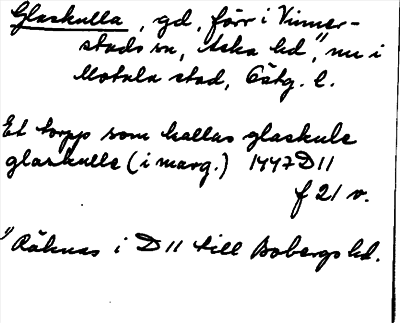 Glaskulla, gd, förr i Vinner-
stads sn, Aska hd¹⁾, nu i
Motala stad, Östg. l.
Et torpp som kallas glaskule
glaskulle (i marg.) 1447 D 11
f 21 v.
¹⁾ Räknas i D 11 till Bobergs hd.